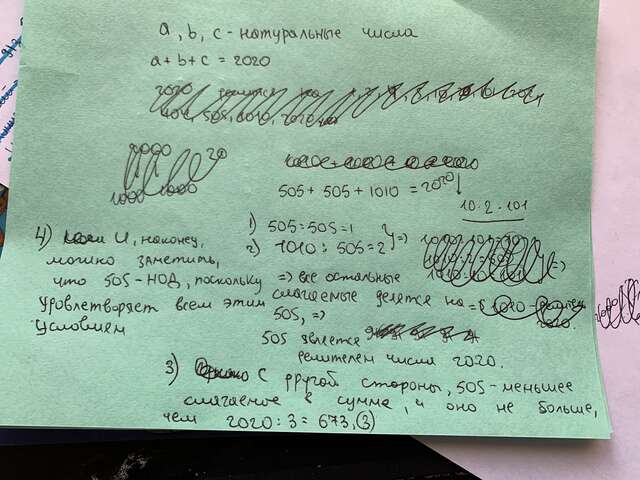 a, b, c - натуральные числа
a + b + c = 2020
2020
505 + 505 + 1010 = 2020
10·2·101
1) 505:505=1
2) 1010:505=2 } =>
=> все остальные
слагаемые делятся на
505, =>
505 является
делителем числа 2020.
3) С другой стороны, 505 - меньшее
слагаемое в сумме, и оно не больше,
чем 2020:3 = 673,(3)
4) И, наконец,
можно заметить,
что 505-НОД, поскольку
удовлетворяет всем этим
условием